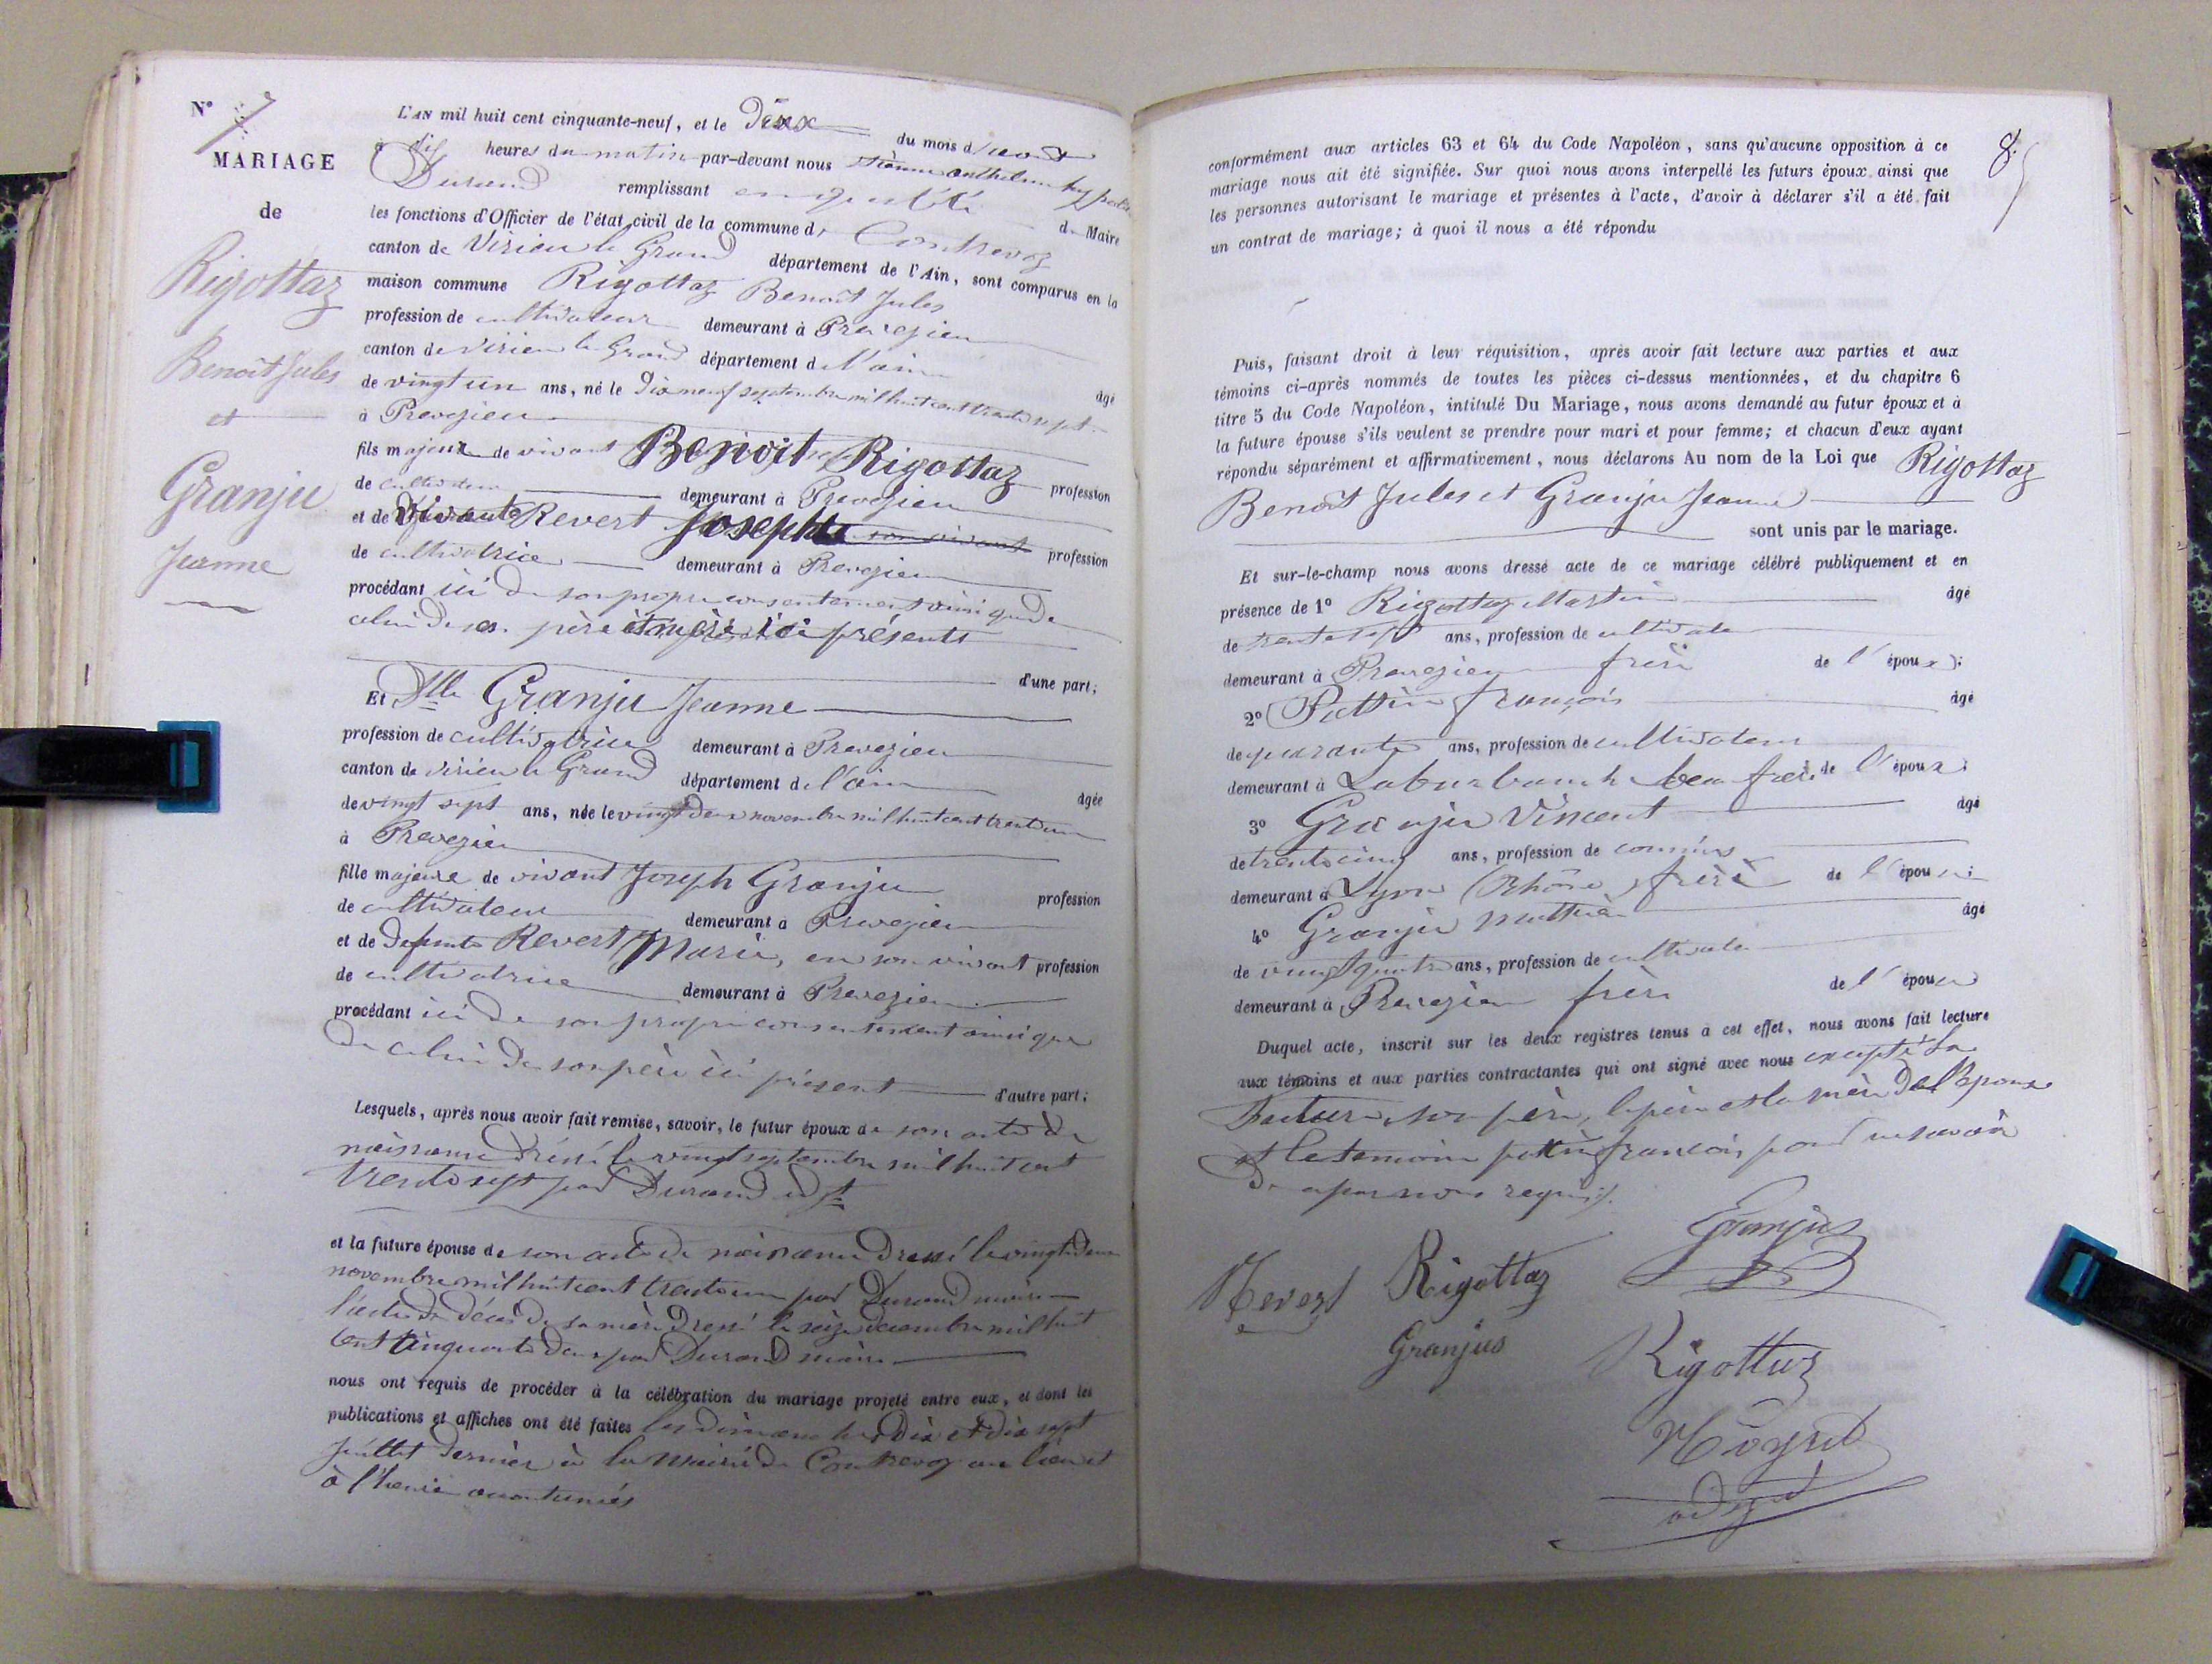 N° 7
MARIAGE
de
Rigottaz
Benoit Jules
et
Granju
Jeanne
L'AN mil huit cent cinquante-neuf, et le Deux du mois d'août
à dix heures du matin par-devant nous
Durand remplissant en qualité de Maire
les fonctions d'Officier de l'état civil de la commune de Contrevoz
canton de Virieu le Grand département de l'Ain, sont comparus en la
maison commune Rigottaz Benoit Jules
profession de cultivateur demeurant à Prevezieu
canton de Virieu le Grand département de l'ain âgé
de vingt un ans, né le dix neuf septembre mil huit cent trente sept
à Prevezieu
fils majeur de vivant Benoit Rigottaz profession
de cultivateur demeurant à Prevezieu
et de vivante Revert Josephte profession
de cultivatrice demeurant à Prevezieu
procédant ici de son propre consentement ainsi que de
celui de ses père et mère ici présents
d'une part;
Et Dlle Granju Jeanne
profession de cultivatrice demeurant à Prevezieu
canton de virieu le Grand département de l'ain âgée
de vingt sept ans, née le vingt deux novembre mil huit cent trente un
à Prevezieu
fille majeure de vivant Joseph Granju profession
de cultivateur demeurant à Prevezieu
et de defunte Revert Marie, en son vivant profession
de cultivatrice demeurant à Prevezieu
procédant ici de son propre consentement ainsi que
de celui de son père ici présent d'autre part;
Lesquels, après nous avoir fait remise, savoir, le futur époux de son acte de
naissance dressé le vingt septembre mil huit cent
trente sept par Durand adjt
et la future épouse de son acte de naissance dressé le vingt deux
novembre mil huit cent trente un par Durand maire
l'acte de décès de sa mère dressé le seize decembre mil huit
cent cinquante deux par Durand maire
nous ont requis de procéder à la célébration du mariage projeté entre eux, et dont les
publications et affiches ont été faites les dimanches dix et dix sept
juillet dernier à la mairie de Contrevoz au lieu et
à l'heure accoutumés
8.
conformément aux articles 63 et 64 du Code Napoléon, sans qu'aucune opposition à ce
mariage nous ait été signifiée. Sur quoi nous avons interpellé les futurs époux, ainsi que
les personnes autorisant le mariage et présentes à l'acte, d'avoir à déclarer s'il a été fait
un contrat de mariage; à quoi il nous a été répondu
Puis, faisant droit à leur réquisition, après avoir fait lecture aux parties et aux
témoins ci-après nommés de toutes les pièces ci-dessus mentionnées, et du chapitre 6
titre 5 du Code Napoléon, intitulé Du Mariage, nous avons demandé au futur époux et à
la future épouse s'ils veulent se prendre pour mari et pour femme; et chacun d'eux ayant
répondu séparément et affirmativement, nous déclarons Au nom de la Loi que Rigottaz
Benoit Jules et Granju Jeanne
sont unis par le mariage.
Et sur-le-champ nous avons dressé acte de ce mariage célébré publiquement et en
présence de 1° Rigottaz Martin âgé
de trente sept ans, profession de cultivateur
demeurant à Prevezieu frère de l'époux;
2° Pattin françois âgé
de quarante ans, profession de cultivateur
demeurant à beau frère de l'époux;
3° Granju Vincent âgé
de trente cinq ans, profession de commis
demeurant à Lyon (Rhône) frère de l'épouse;
4° Granju Mathieu âgé
de vingt quatre ans, profession de cultivateur
demeurant à Prevezieu frère de l'épouse
Duquel acte, inscrit sur les deux registres tenus à cet effet, nous avons fait lecture
aux témoins et aux parties contractantes qui ont signé avec nous excepté la
future, son père, le père et la mère de l'époux
et le temoin pattin françois pour ne savoir
de ce par nous requis.
Granjus
Revert Rigottaz
Granjus
Rigottaz